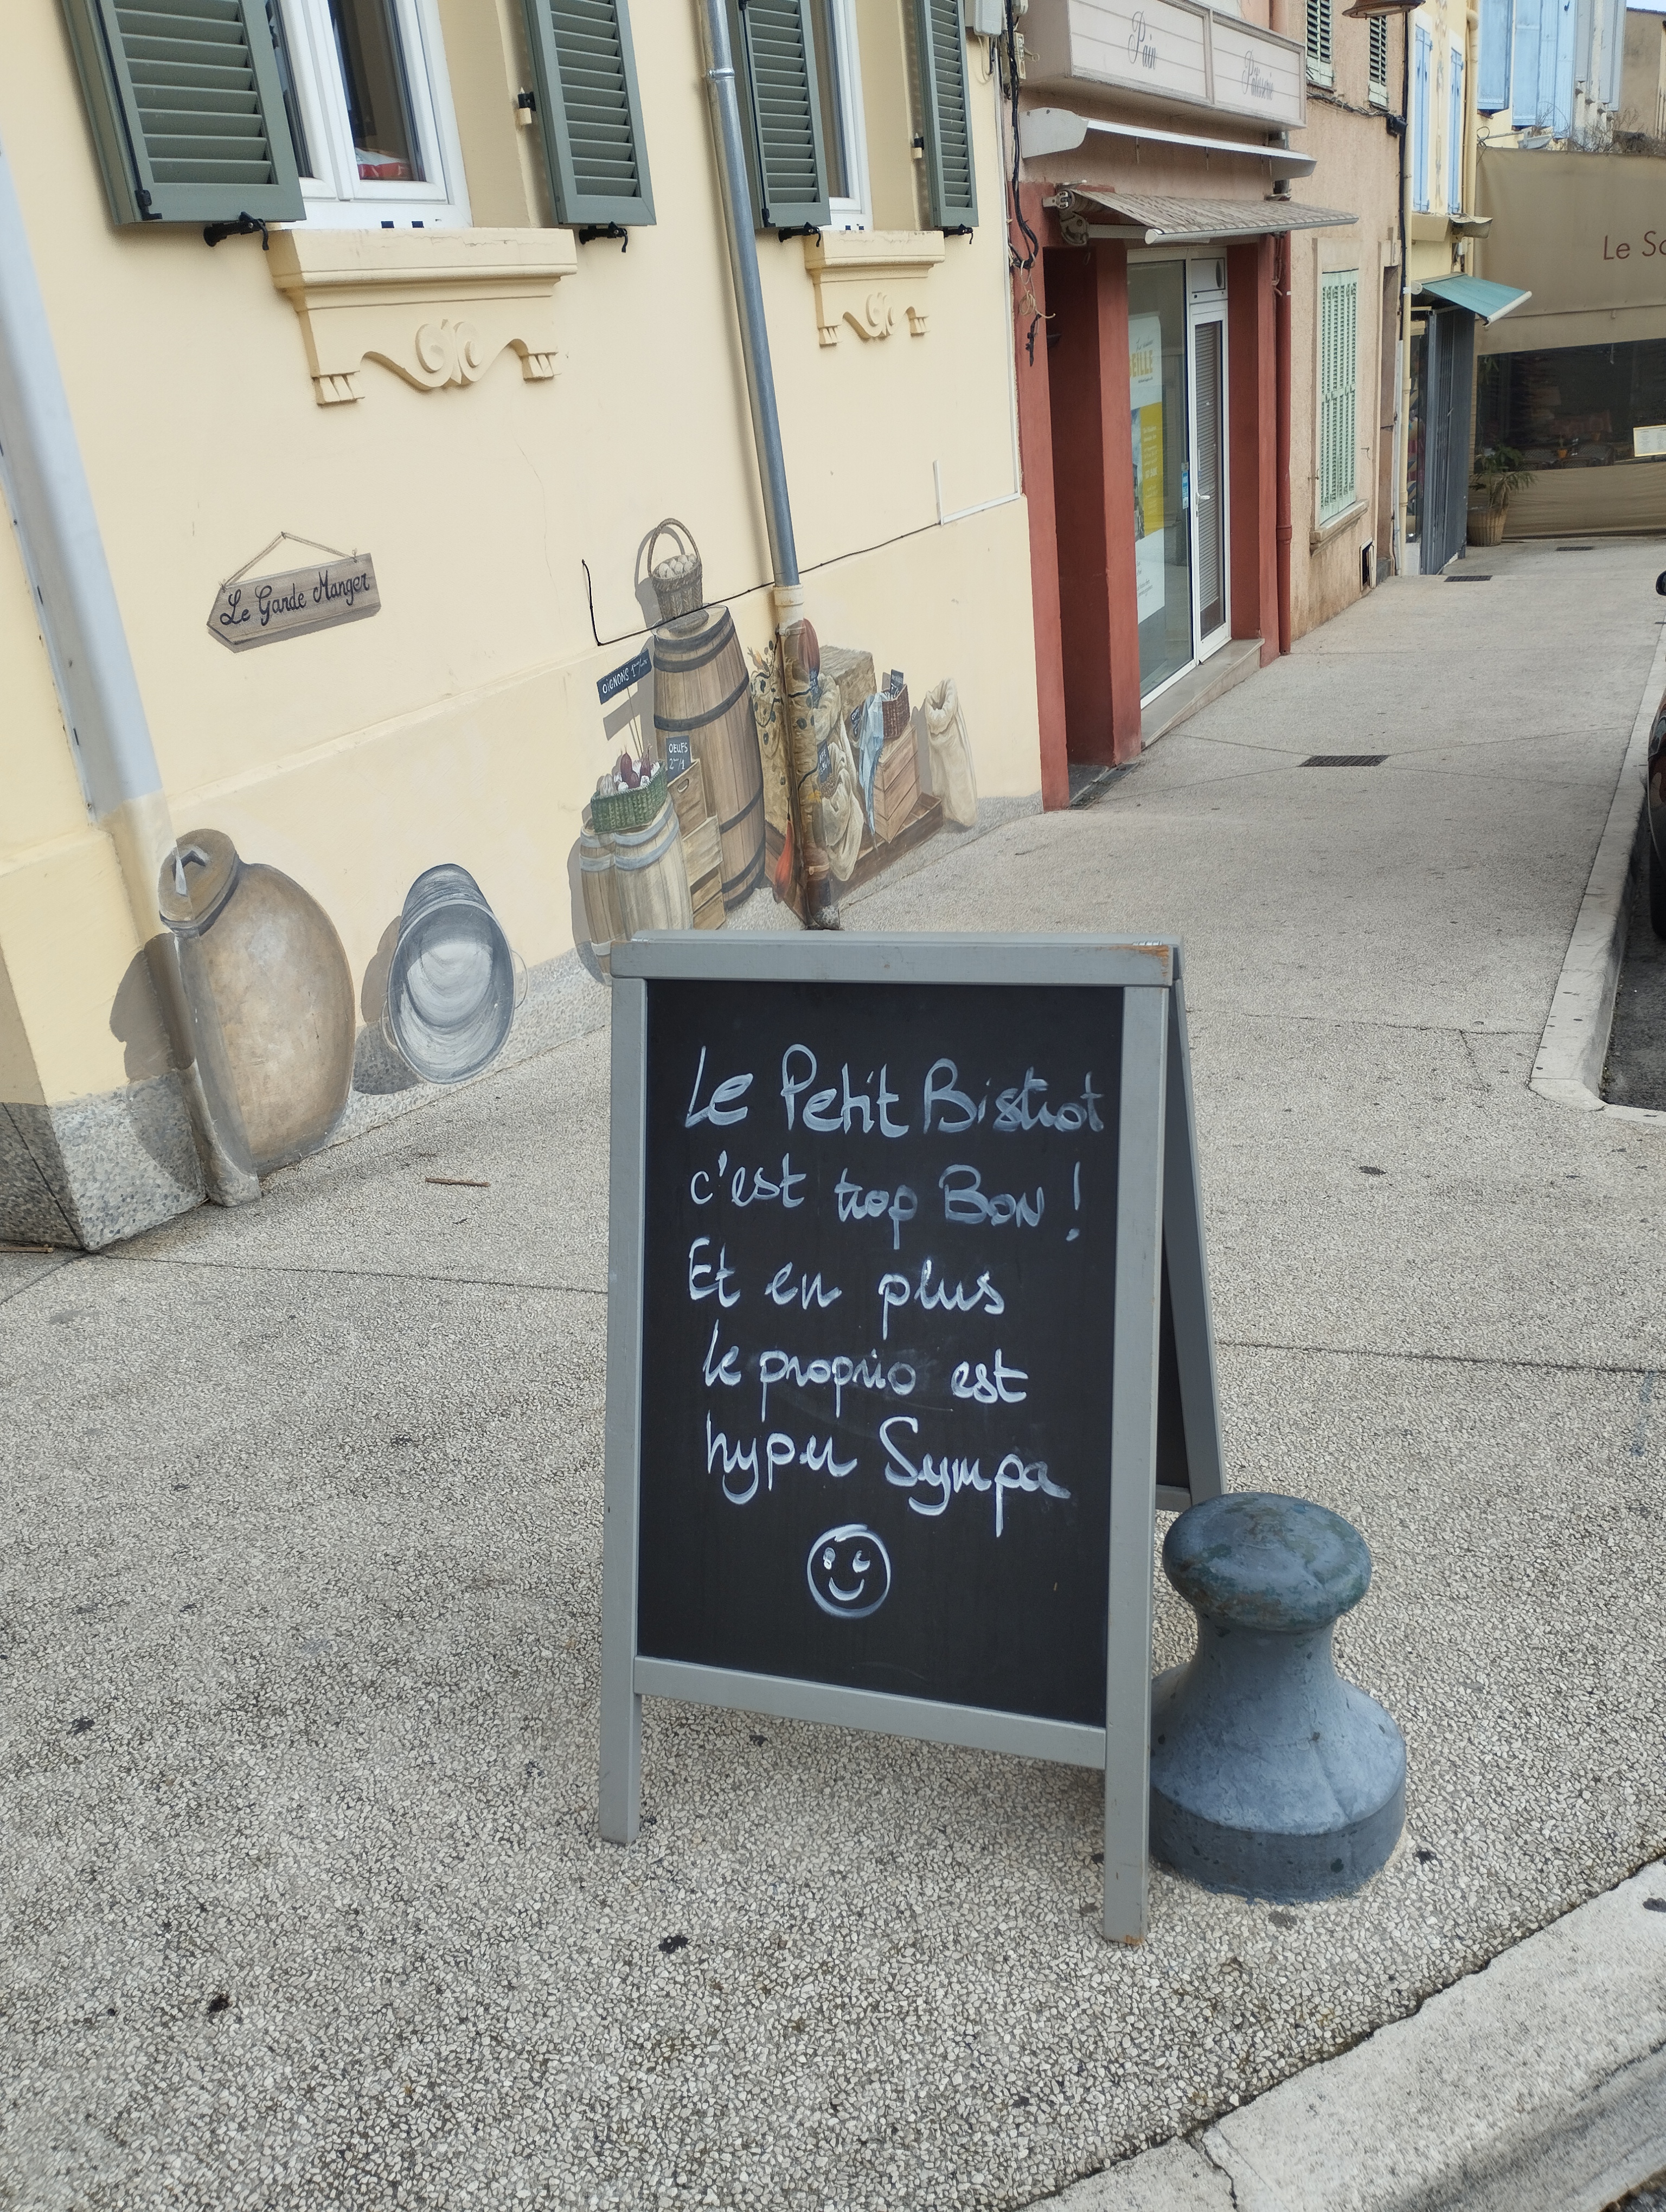 Pain
Pâtisserie
Le Garde Manger
OIGNONS
OEUFS
Le Petit Bistrot
c'est trop Bon !
Et en plus
le proprio est
hyper Sympa